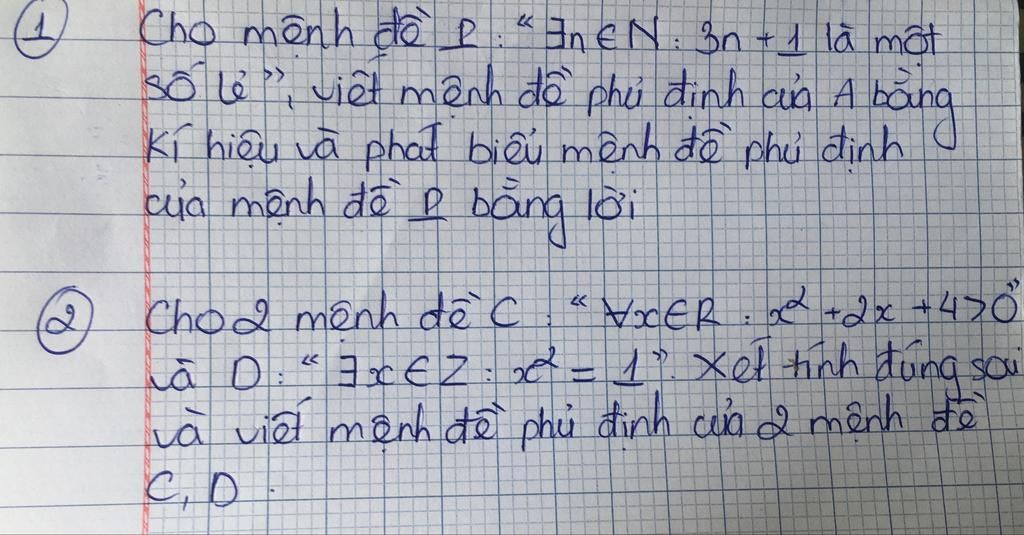 ① Cho mệnh đề P: "∃n∈N: 3n + 1 là một
số lẻ", viết mệnh đề phủ định của A bằng
kí hiệu và phát biểu mệnh đề phủ định
của mệnh đề P bằng lời
② Cho 2 mệnh đề C: "∀x∈R: x² + 2x + 4 > 0"
và D: "∃x∈Z: x² = 1". Xét tính đúng sai
và viết mệnh đề phủ định của 2 mệnh đề
C, D.